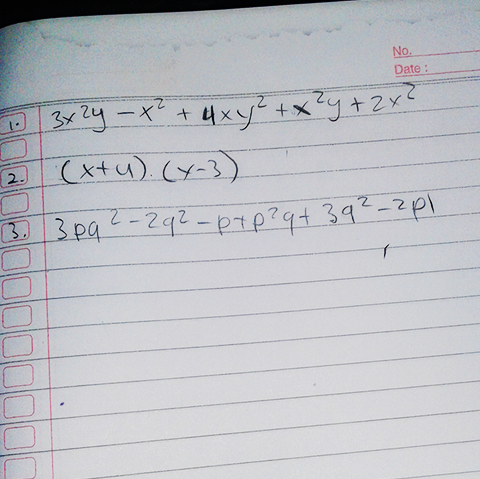 No.
Date :
1. 3x²y - x² + 4xy² + x²y + 2x²
2. (x+4).(x-3)
3. 3pq² - 2q² - p + p²q + 3q² - 2p